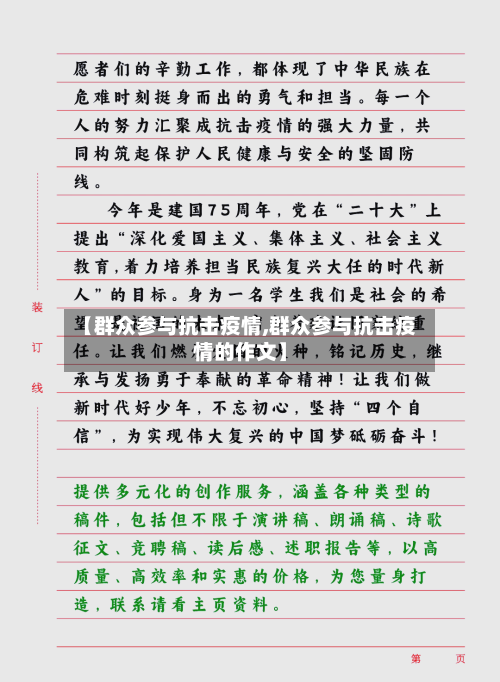 愿者们的辛勤工作，都体现了中华民族在
危难时刻挺身而出的勇气和担当。每一个
人的努力汇聚成抗击疫情的强大力量，共
同构筑起保护人民健康与安全的坚固防
线。
今年是建国75周年，党在“二十大”上
提出“深化爱国主义、集体主义、社会主义
教育，着力培养担当民族复兴大任的时代新
人”的目标。身为一名学生我们是社会的希
【群众参与抗击疫情,群众参与抗击疫
情的作文】
望
任。让我们燃 种，铭记历史，继
承与发扬勇于奉献的革命精神！让我们做
新时代好少年，不忘初心，坚持“四个自
信”，为实现伟大复兴的中国梦砥砺奋斗！
提供多元化的创作服务，涵盖各种类型的
稿件，包括但不限于演讲稿、朗诵稿、诗歌
征文、竞聘稿、读后感、述职报告等，以高
质量、高效率和实惠的价格，为您量身打
造，联系请看主页资料。
装
订
线
第 页